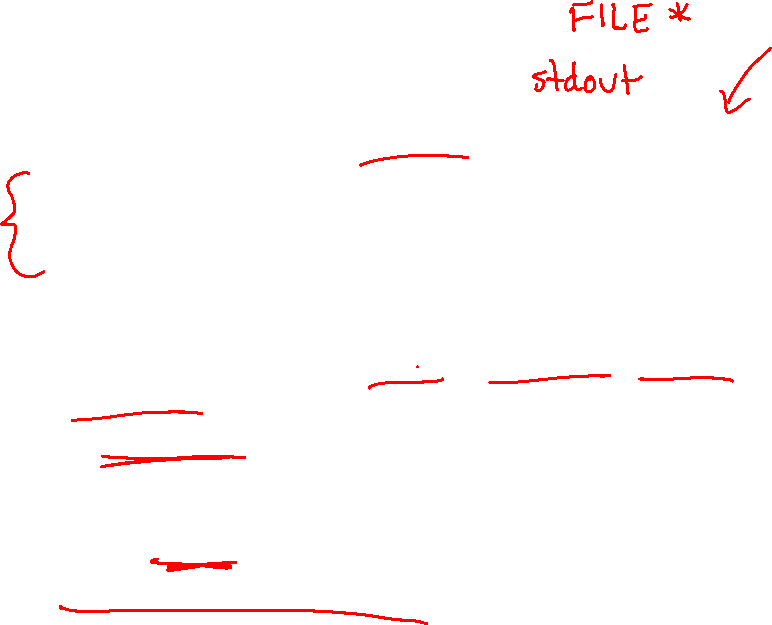 FILE *
stdout